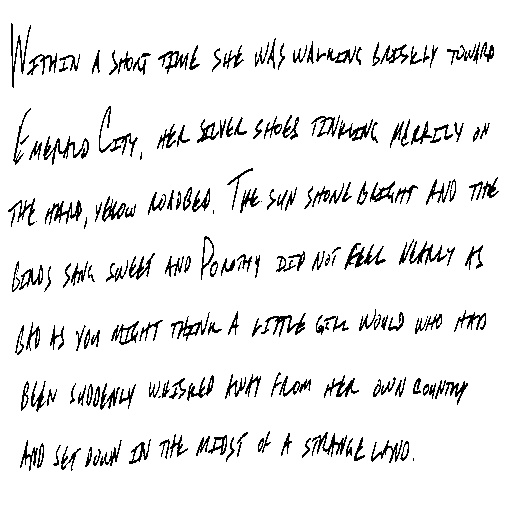 Within a short time she was walking briskly toward
Emerald City, her silver shoes tinkling merrily on
the hard, yellow roadbed. The sun shone bright and the
birds sang sweet and Dorothy did not feel nearly as
bad as you might think a little girl would who had
been suddenly whisked away from her own country
and set down in the midst of a strange land.